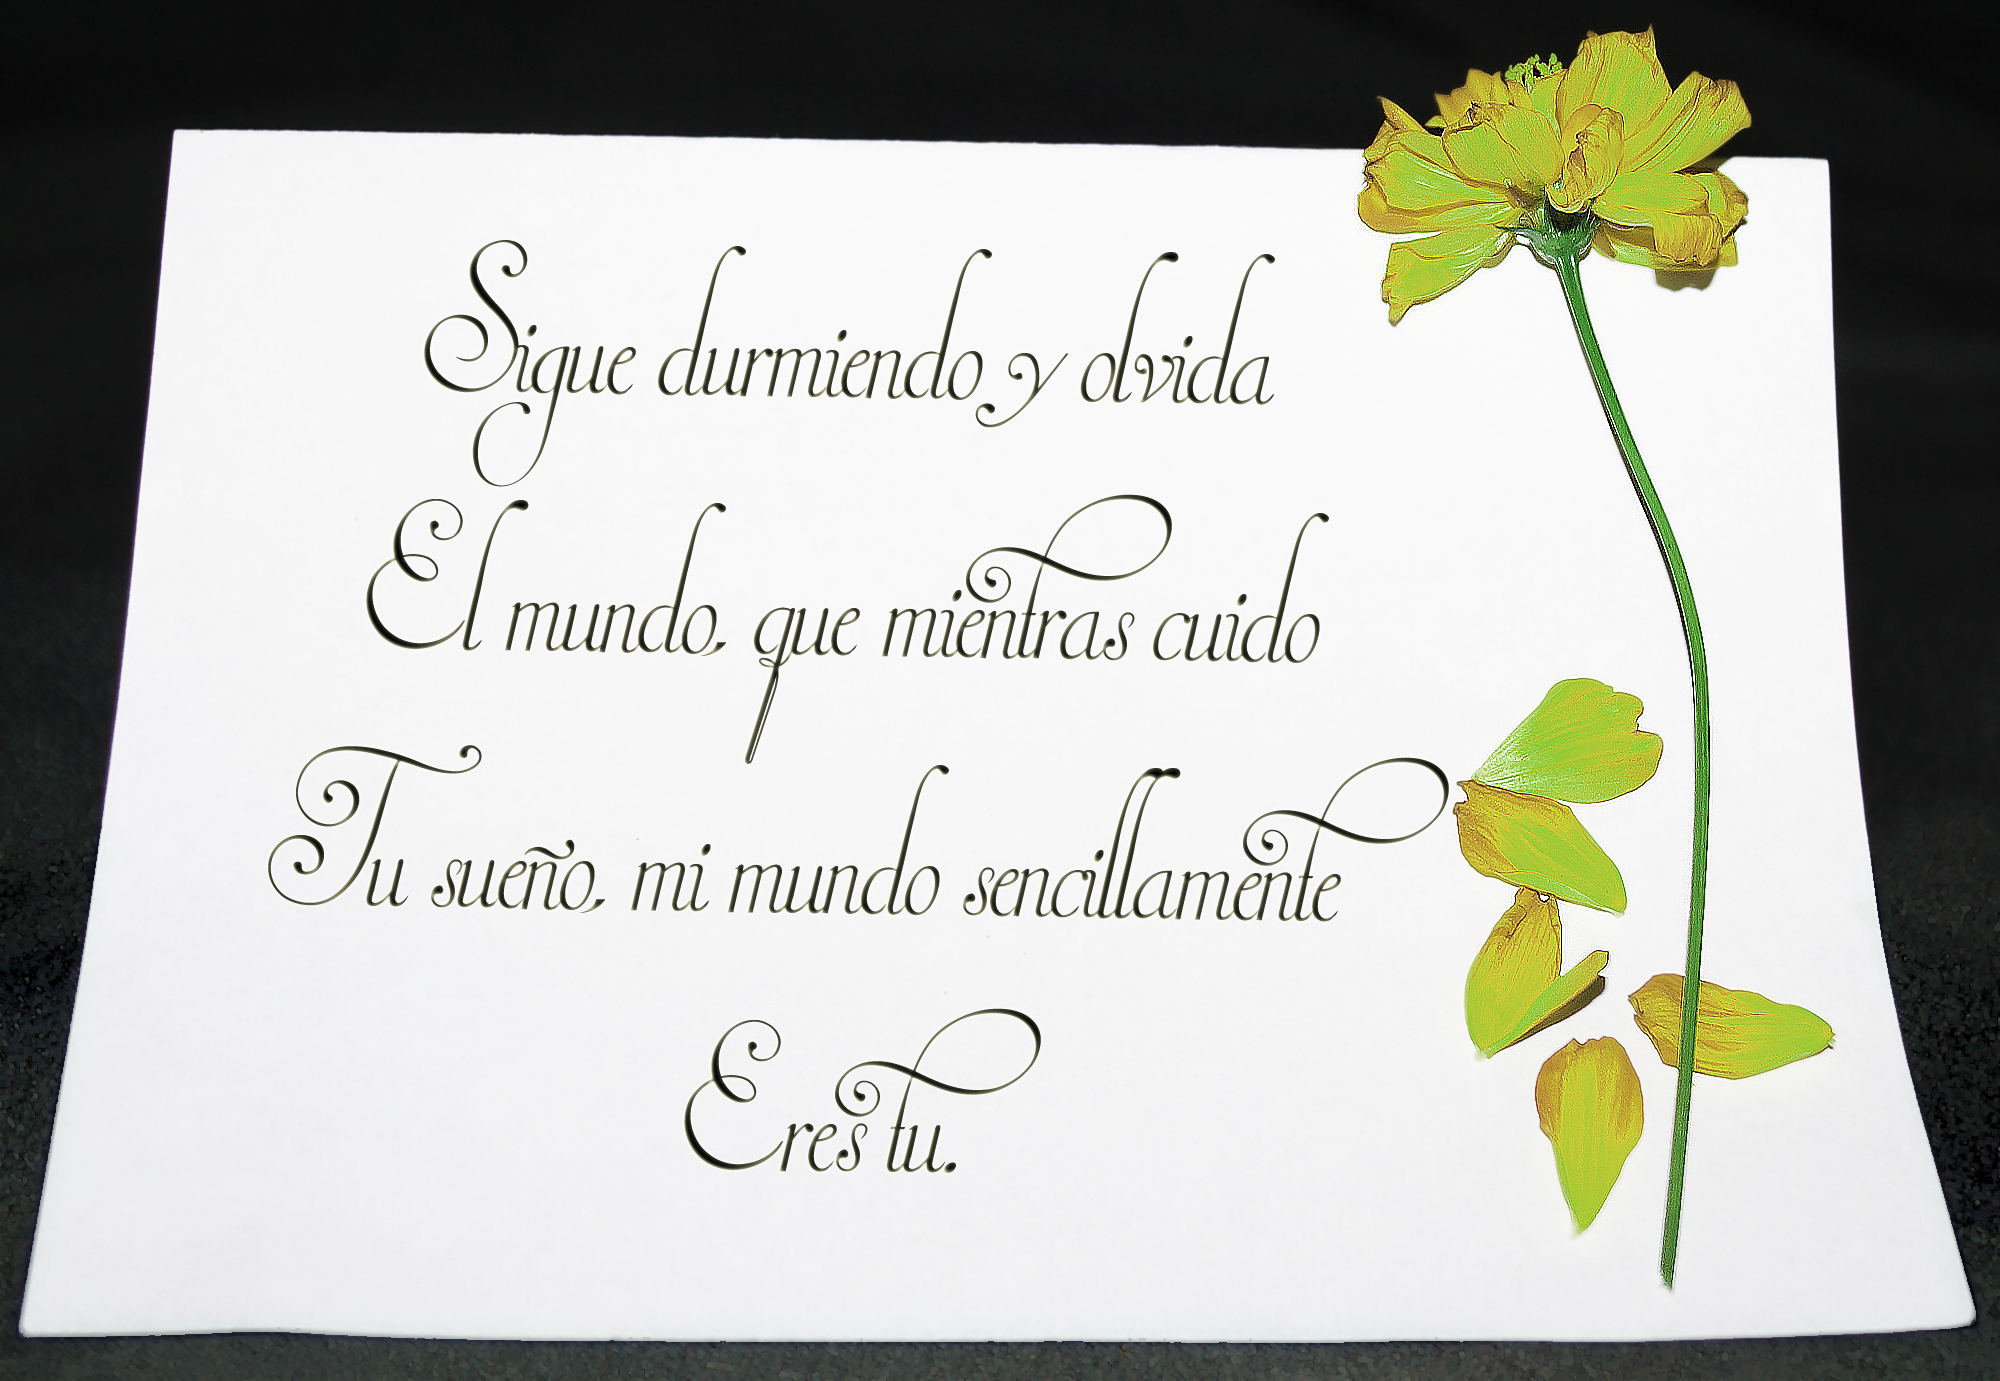 Sigue durmiendo y olvida
El mundo, que mientras cuido
Tu sueño, mi mundo sencillamente
Eres tu.